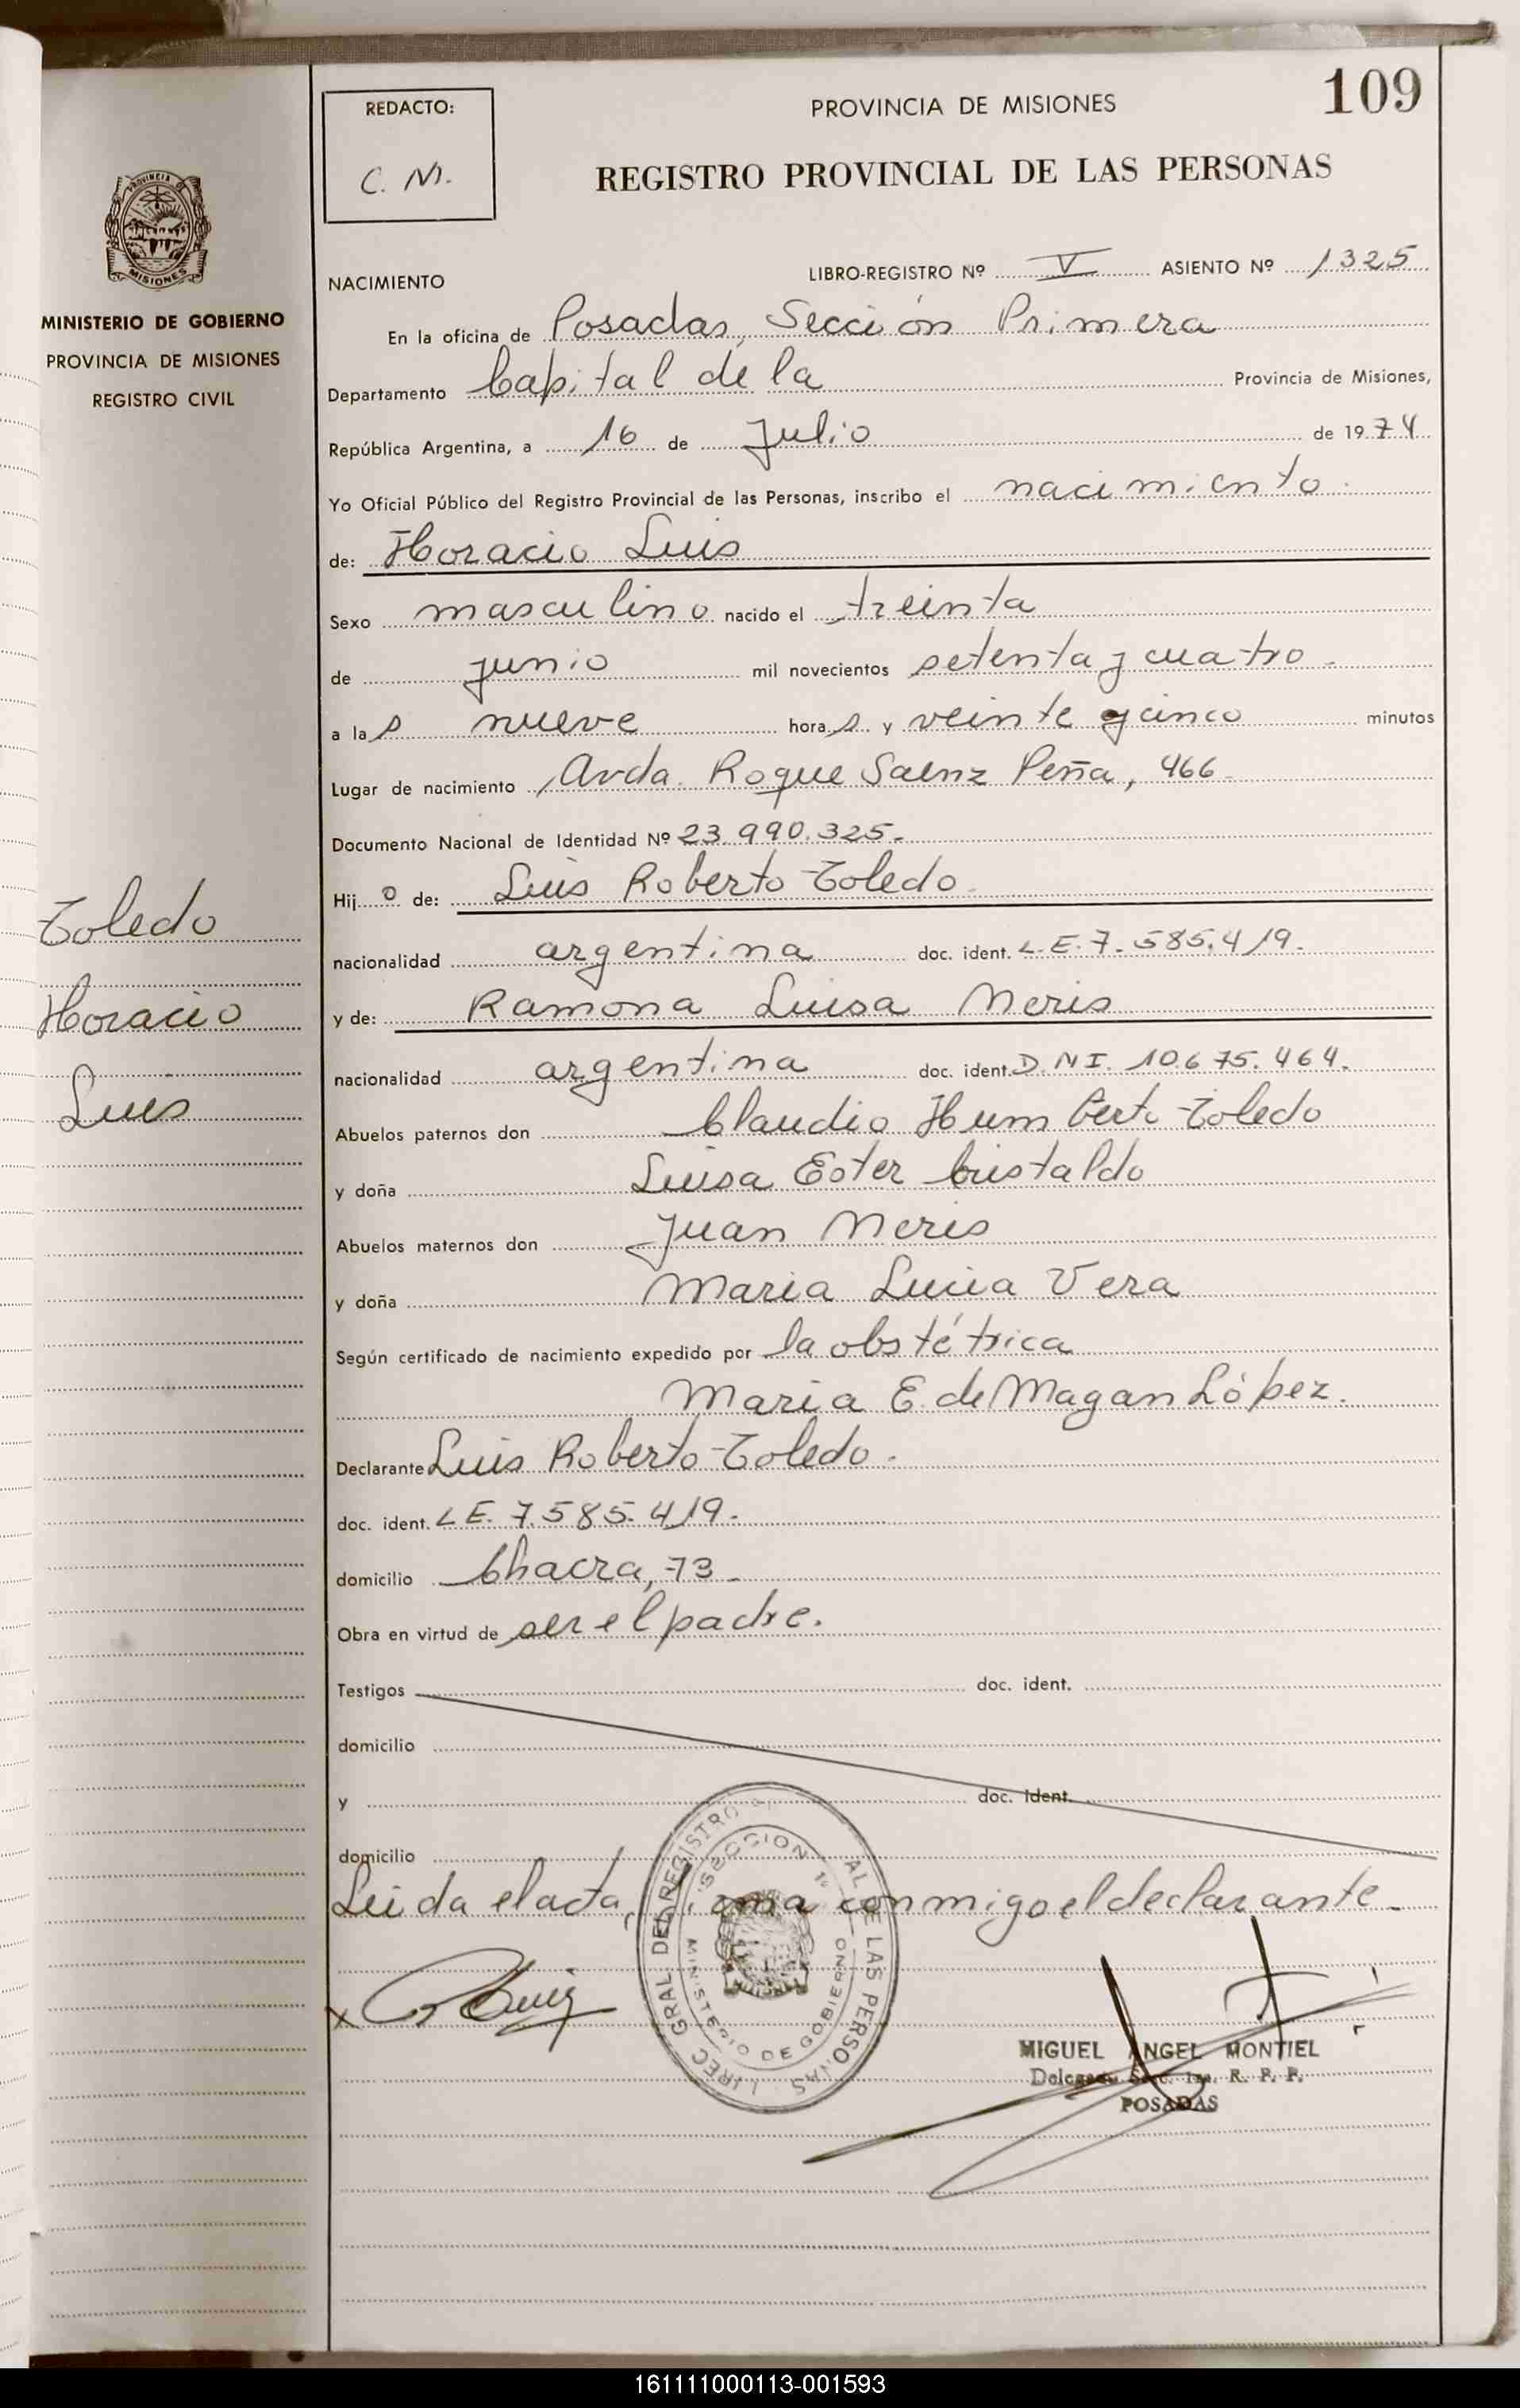 109
REDACTO:
C. M.
PROVINCIA DE MISIONES
REGISTRO PROVINCIAL DE LAS PERSONAS
PROVINCIA DE
MISIONES
MINISTERIO DE GOBIERNO
PROVINCIA DE MISIONES
REGISTRO CIVIL
NACIMIENTO
LIBRO-REGISTRO Nº V ASIENTO Nº 1325
En la oficina de Posadas, Sección Primera
Departamento Capital de la Provincia de Misiones,
República Argentina, a 16 de Julio de 1974
Yo Oficial Público del Registro Provincial de las Personas, inscribo el nacimiento.
de: Horacio Luis
Sexo masculino nacido el treinta
de junio mil novecientos setenta y cuatro.
a las nueve horas y veinte y cinco minutos
Lugar de nacimiento Avda. Roque Saenz Peña, 466.
Documento Nacional de Identidad Nº 23.990.325.
Hijo de: Luis Roberto Toledo.
nacionalidad argentina doc. ident. L.E. 7.585.419.
y de: Ramona Luisa Neris
nacionalidad argentina doc. ident. D.N.I. 10.675.464.
Abuelos paternos don Claudio Humberto Toledo
y doña Luisa Ester Cristaldo
Abuelos maternos don Juan Neris
y doña Maria Lucia Vera
Según certificado de nacimiento expedido por la obstétrica
Maria E. de Magan López.
Declarante Luis Roberto Toledo.
doc. ident. L.E. 7.585.419.
domicilio Chacra, 73.
Obra en virtud de ser el padre.
Testigos doc. ident.
domicilio
y doc. ident.
domicilio
Leida el acta, firma conmigo el declarante.
Toledo
Horacio
Luis
DIREC. GRAL. DEL REGISTRO DE LAS PERSONAS
SECCION 1ª
MINISTERIO DE GOBIERNO
MIGUEL ANGEL MONTIEL
Delegado Secc. 1ra. R. P. P.
POSADAS
161111000113-001593